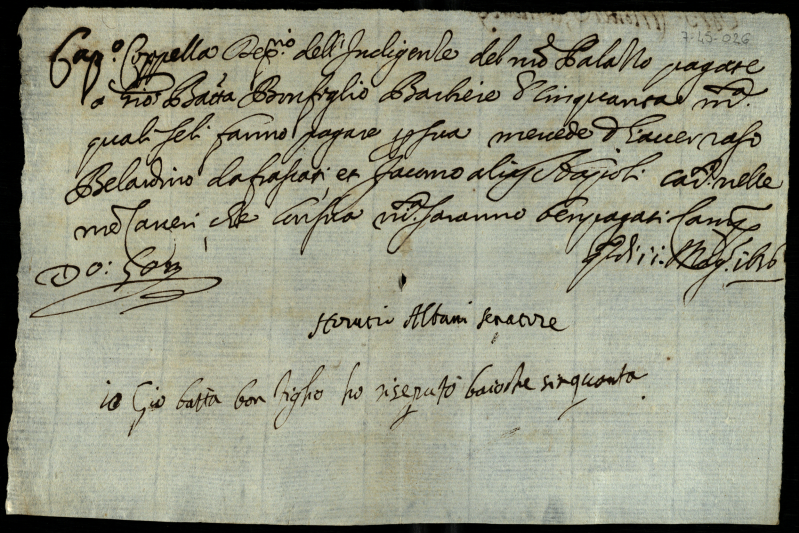 7-45-026
Cap.º Coppella Dep.rio dell'Indigente del nro Palazzo pagate
a Gio: Batta Bonfiglio Barbiere b. cinquanta m.ta
quali seli fanno pagare p sua mercede d'haver raso
Belardino da frascati et Jacomo alias Napoli nelle
che con sua saranno ben pagati
11: Mag.º 1616
Horatio Albani senatore
io Gio batta bon figlio ho riseputo baioche sinquanta